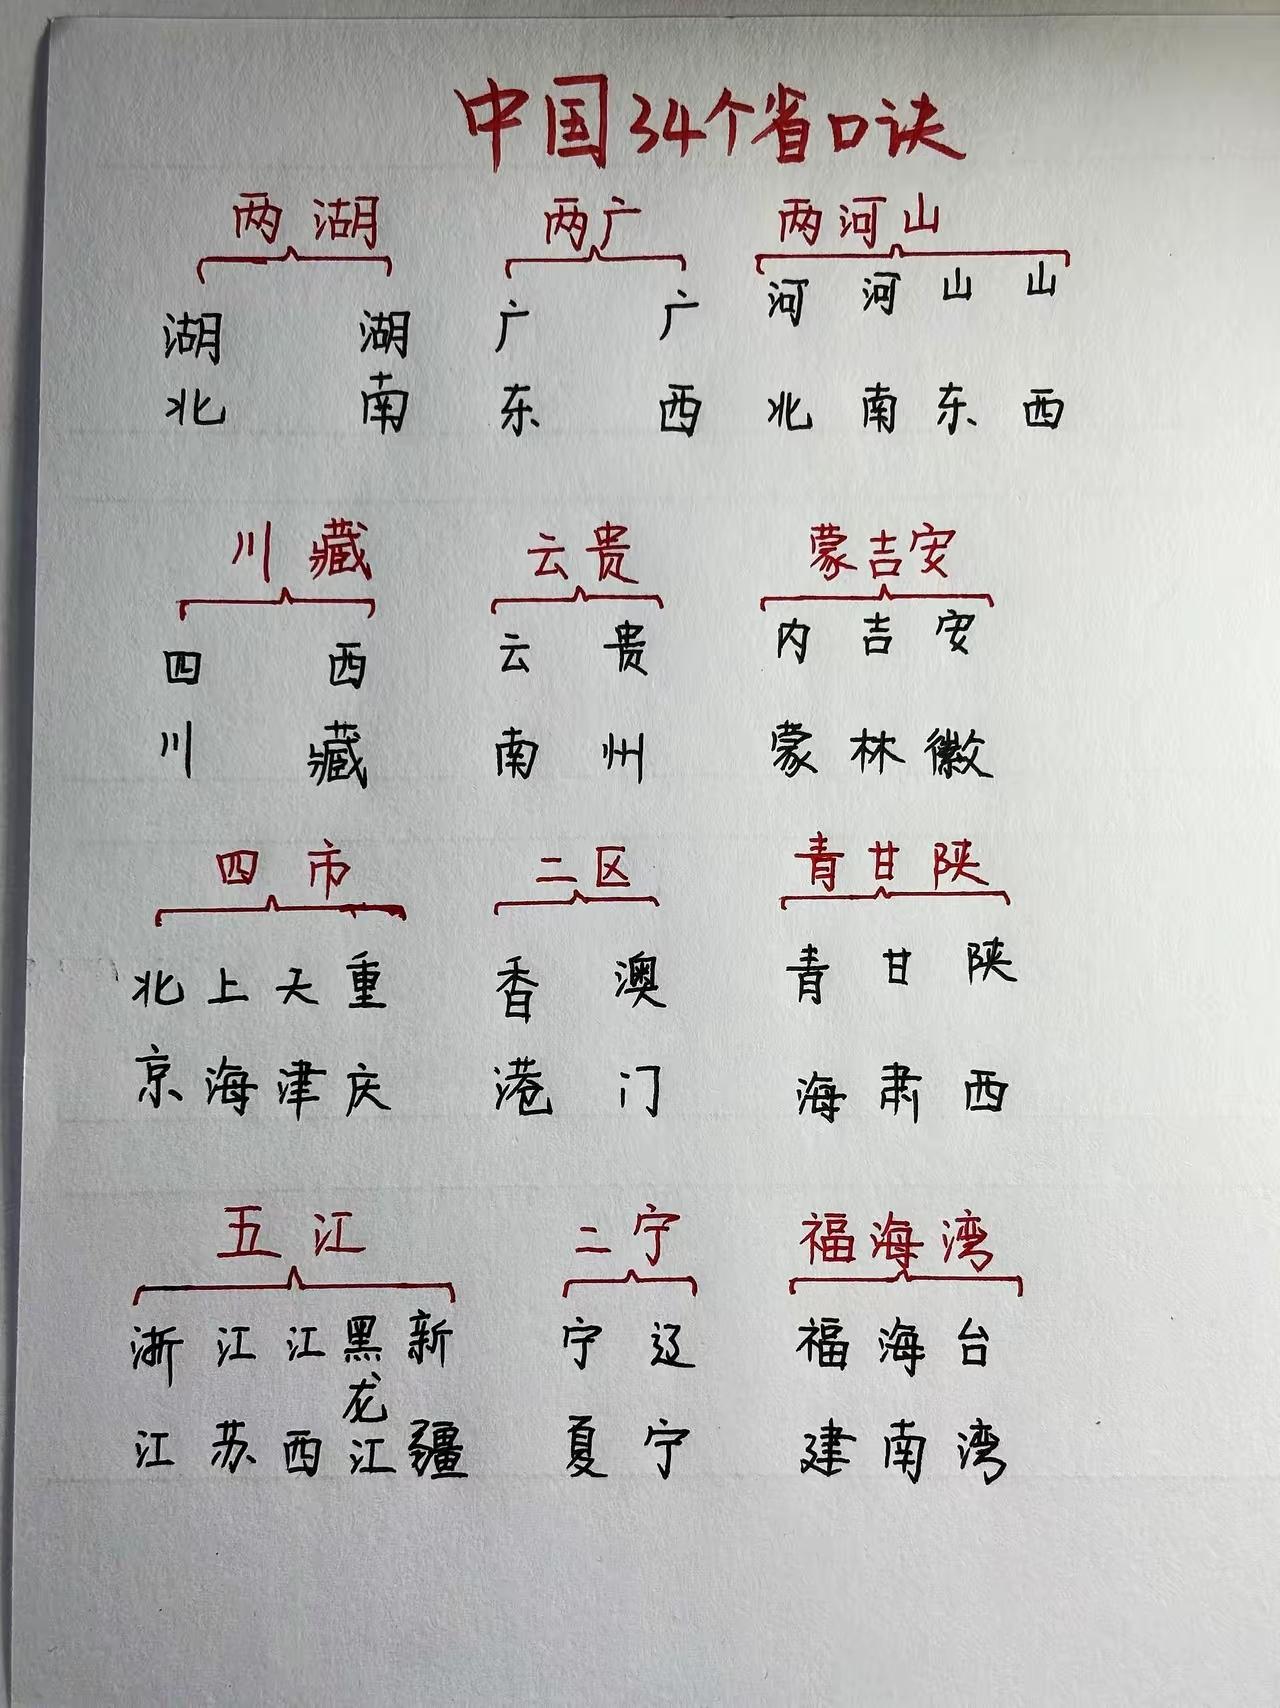 中国34个省口诀
两湖 两广 两河山
湖 湖 广 广 河 河 山 山
北 南 东 西 北 南 东 西
川藏 云贵 蒙吉安
四 西 云 贵 内 吉 安
川 藏 南 州 蒙 林 徽
四市 二区 青甘陕
北 上 天 重 香 澳 青 甘 陕
京 海 津 庆 港 门 海 肃 西
五江 二宁 福海湾
浙 江 江 黑 新 宁 辽 福 海 台
龙
江 苏 西 江 疆 夏 宁 建 南 湾